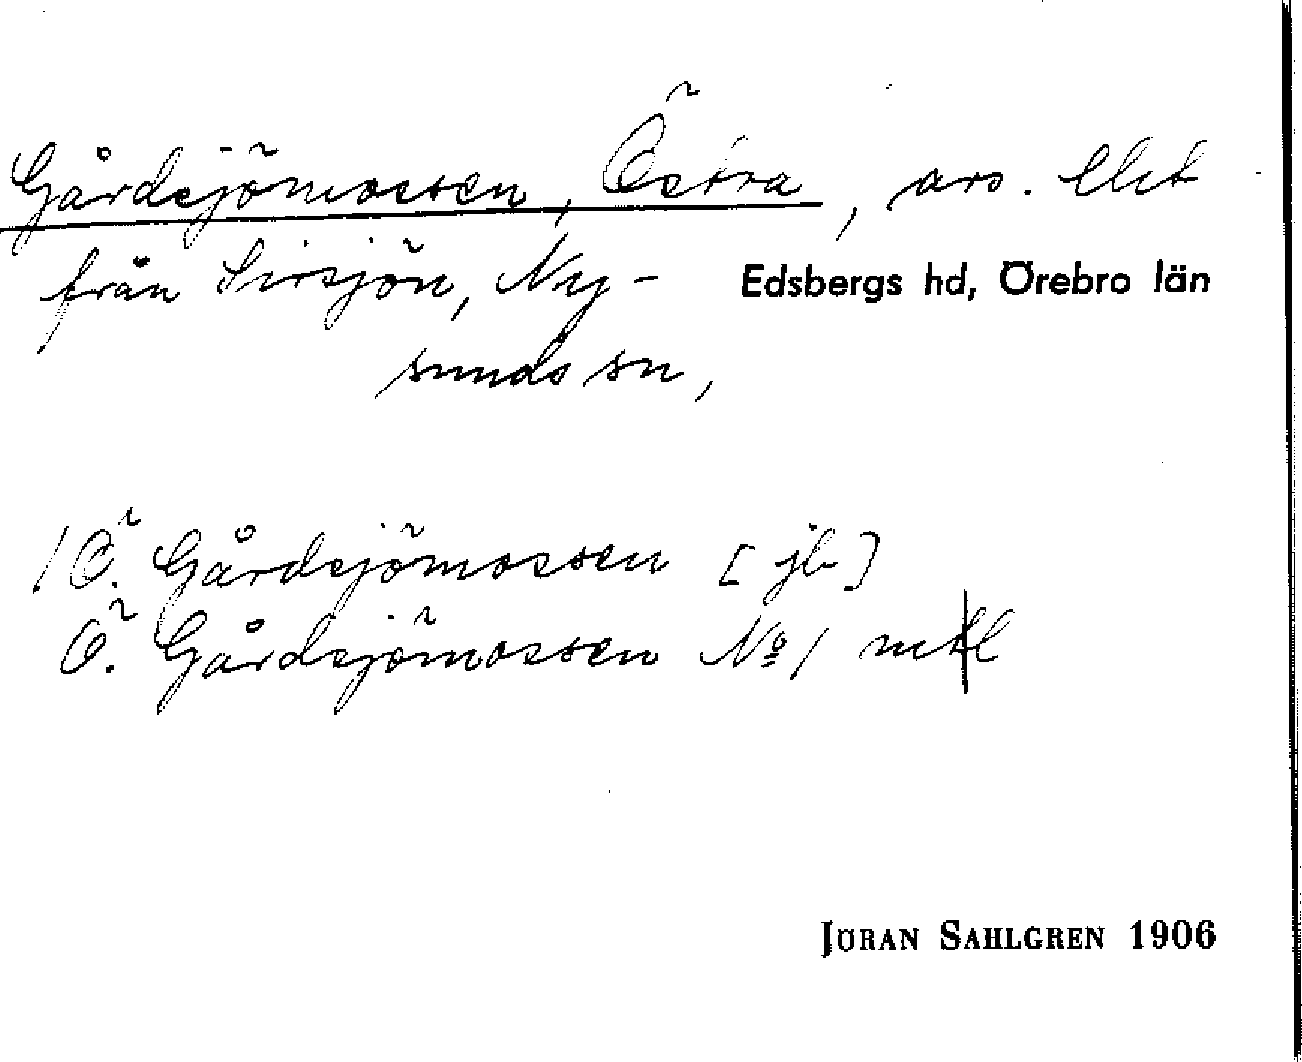 Gårdsjömossen, Östra, avs. lht
från Sirsjön, Ny- Edsbergs hd, Örebro län
sunds sn,
/Ö. Gårdsjömossen [jb]
Ö. Gårdsjömossen No 1 mtl
JÖRAN SAHLGREN 1906